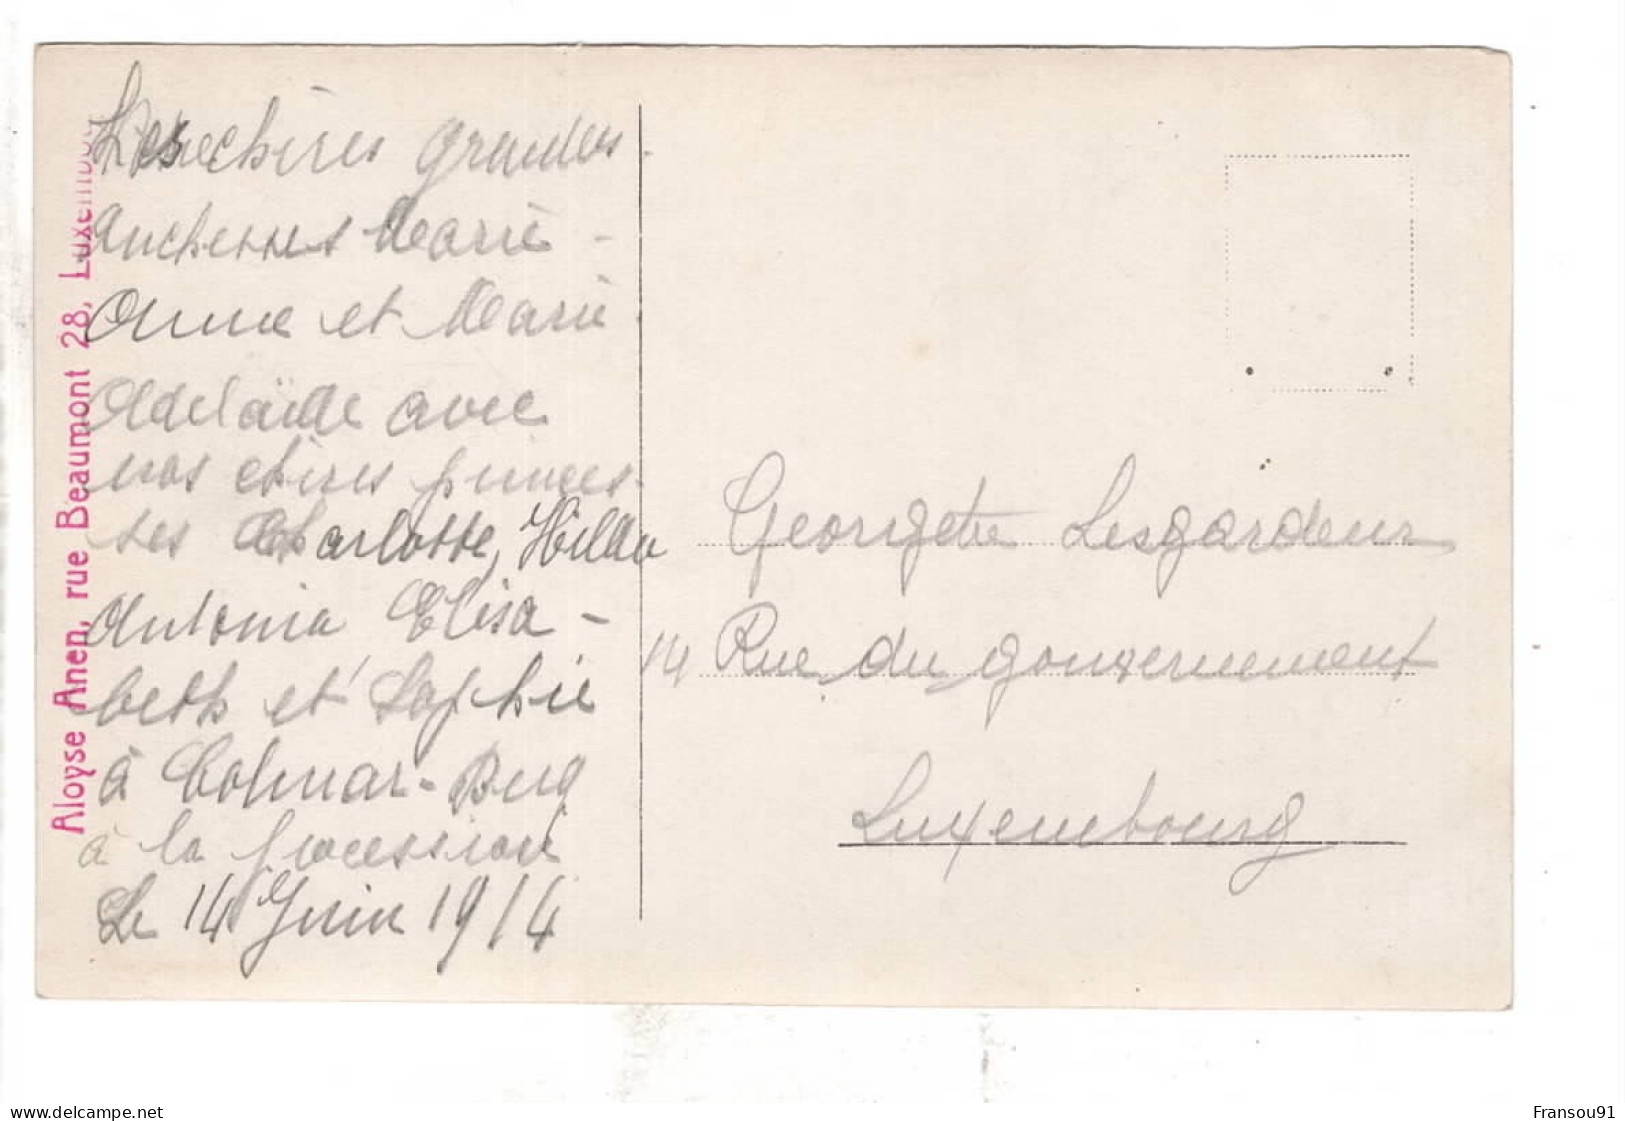 Les chères grandes
duchesses Marie-
Anne et Marie
Adelaïde avec
nos chères princes-
ses Charlotte, Hilda
Antonia Elisa-
beth et Sophie
à Colmar-Berg
à la procession
Le 14 Juin 1914
Aloyse Anen, rue Beaumont 28, Luxembourg
Georgette Lesgardeur
14 Rue du gouvernement
Luxembourg
www.delcampe.net
Fransou91